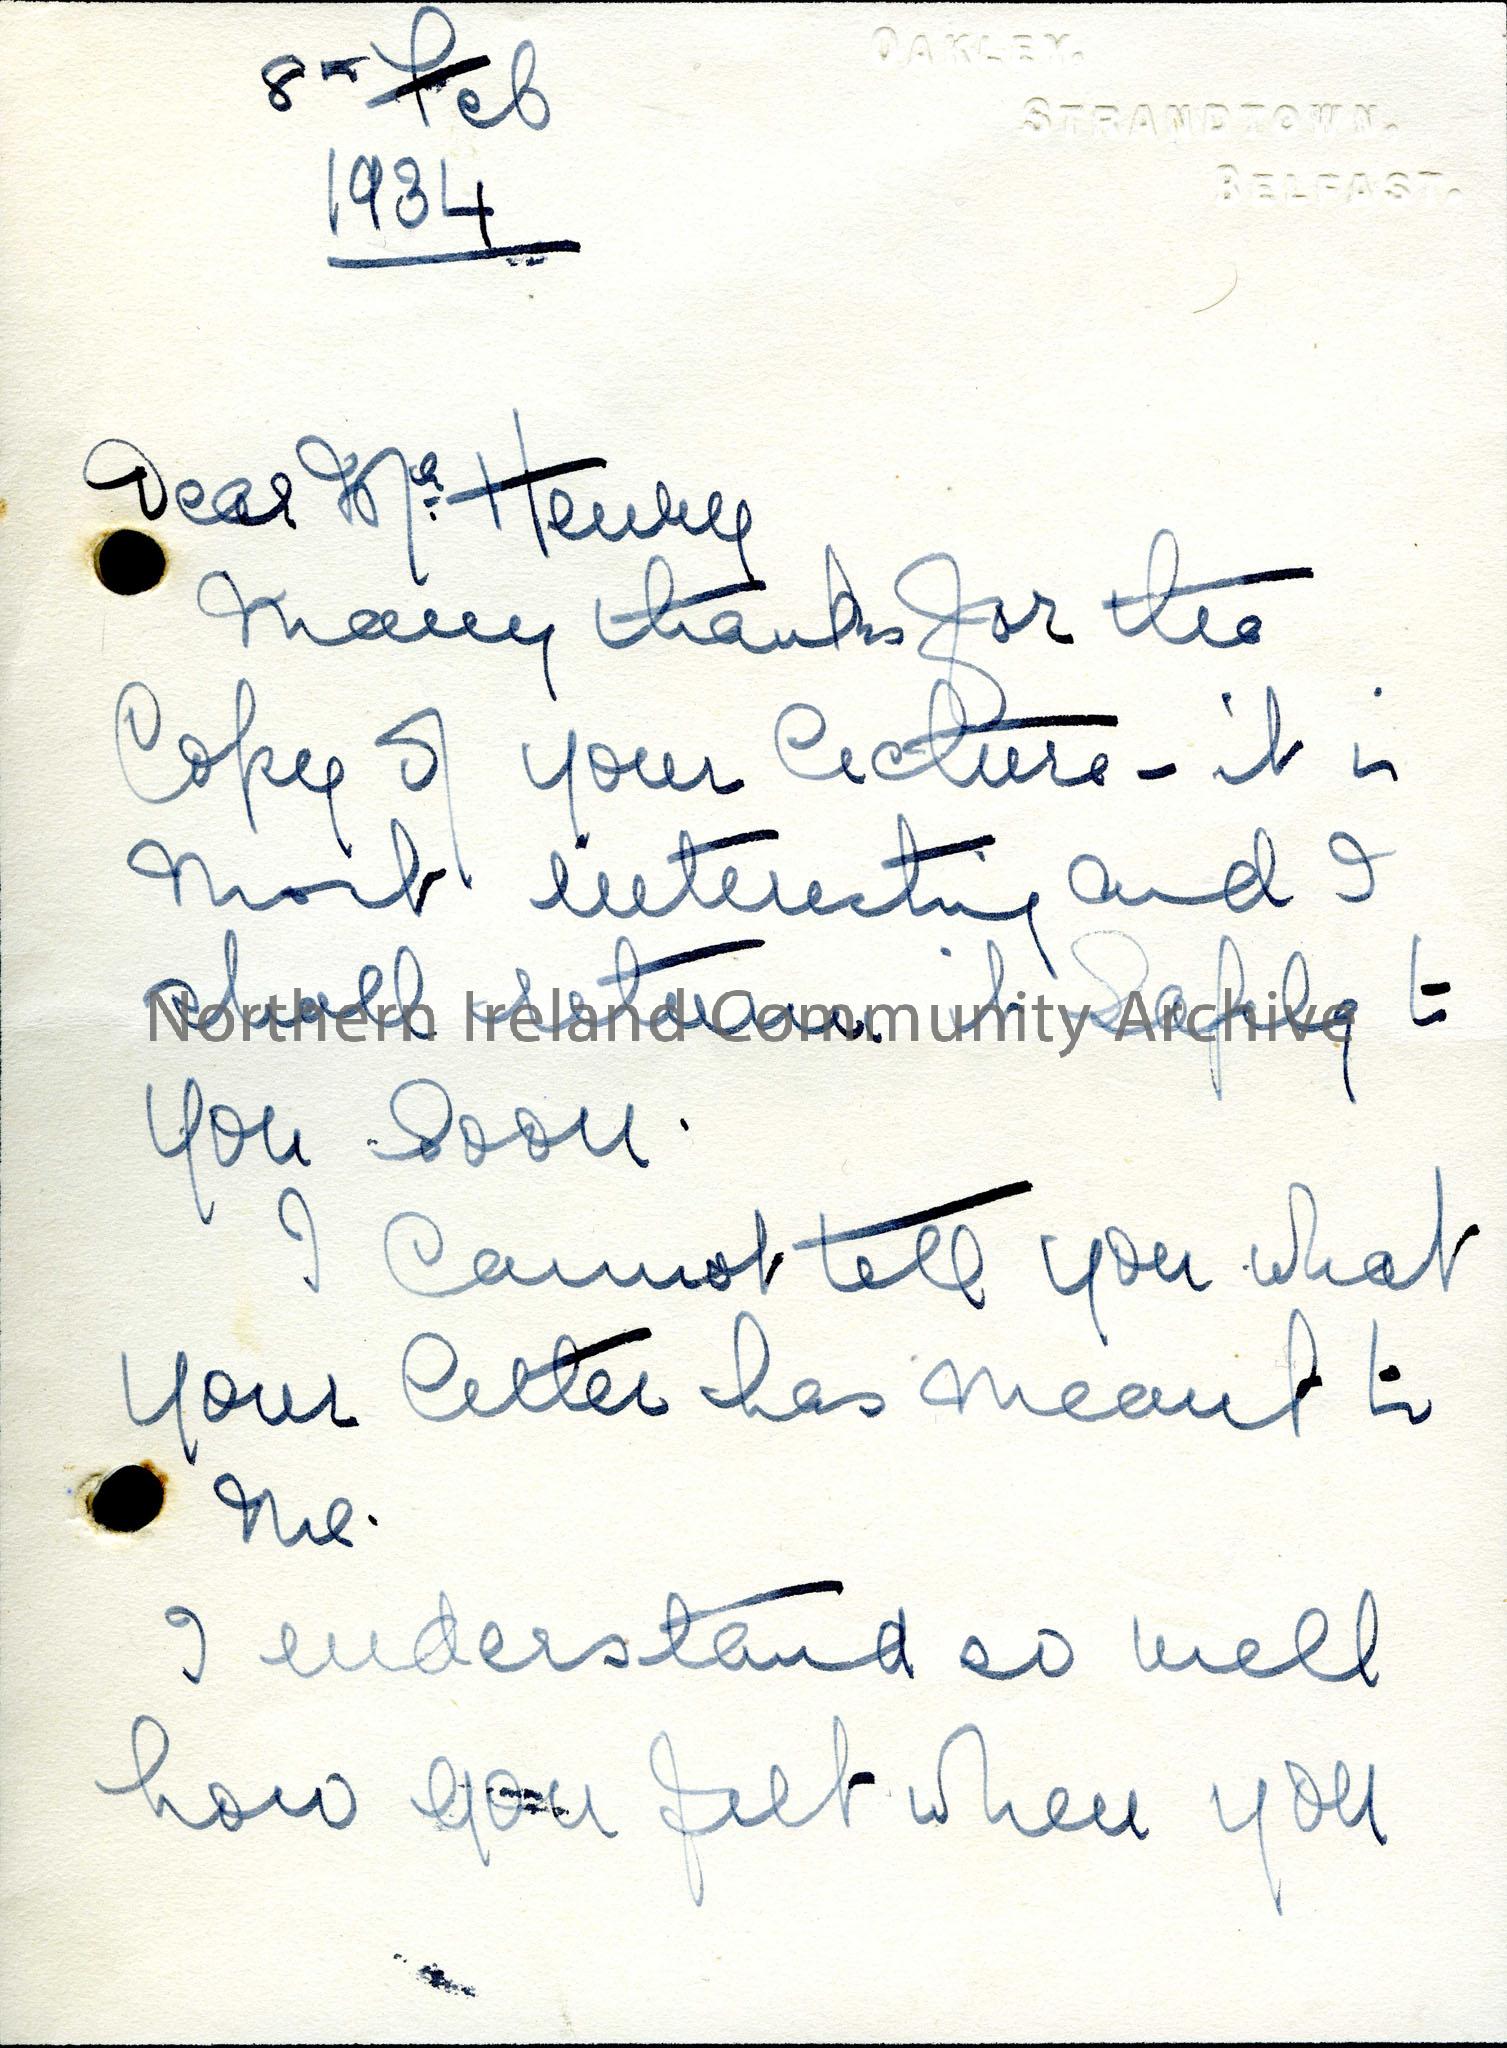 OAKLEY.
STRANDTOWN.
BELFAST.
8th Feb
1934
Dear Mr. Henry
Many thanks for the
Copy of your lecture - it is
most interesting and I
shall return it safely to
Northern Ireland Community Archive
you soon.
I cannot tell you what
your letter has meant to
me.
I understand so well
how you felt when you